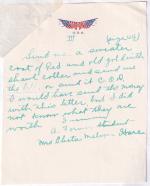 U.S.A.
III
Send me a sweater
coat of Red and old gold with
shawl collar and send me
the C.O.D.
I would have send the money
with this letter but I did
not know what they are
worth
A Former student
Mrs Cheta Melvin